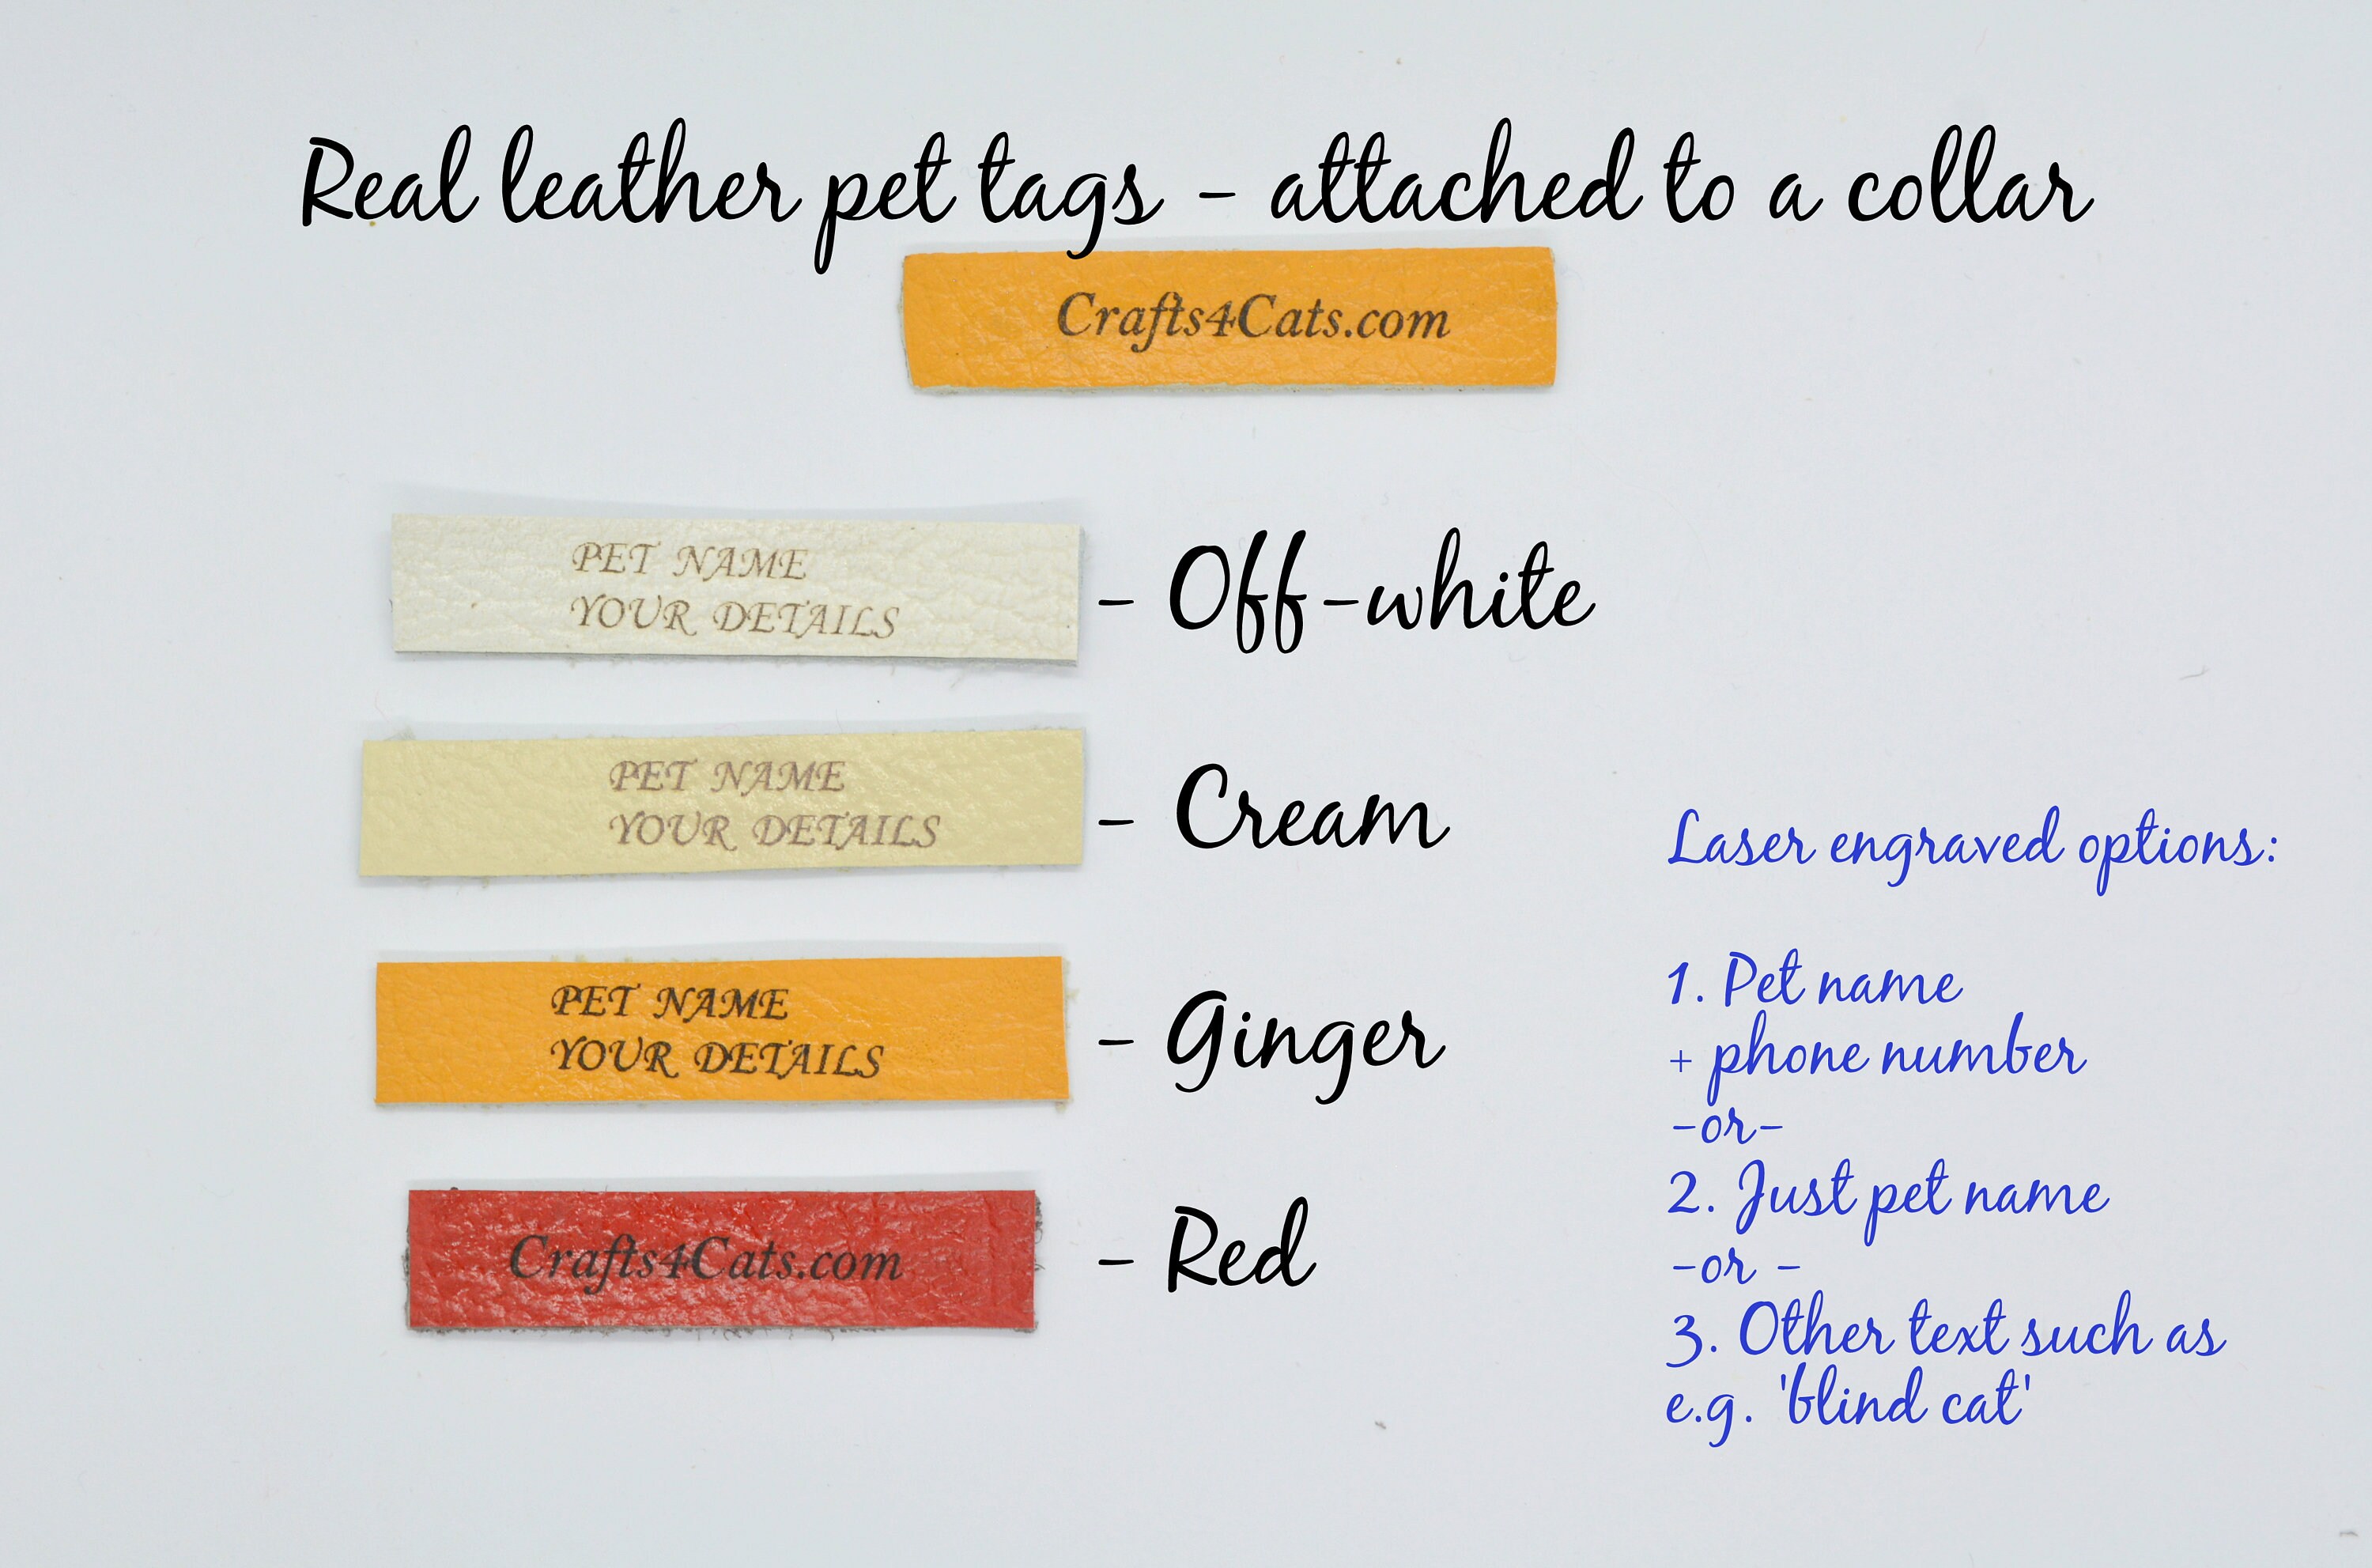 Real leather pet tags - attached to a collar
Crafts4Cats.com
PET NAME
YOUR DETAILS
- Off-white
PET NAME
YOUR DETAILS
- Cream
PET NAME
YOUR DETAILS
- Ginger
Crafts4Cats.com
- Red
Laser engraved options:
1. Pet name
+ phone number
-or-
2. Just pet name
-or -
3. Other text such as
e.g. 'blind cat'